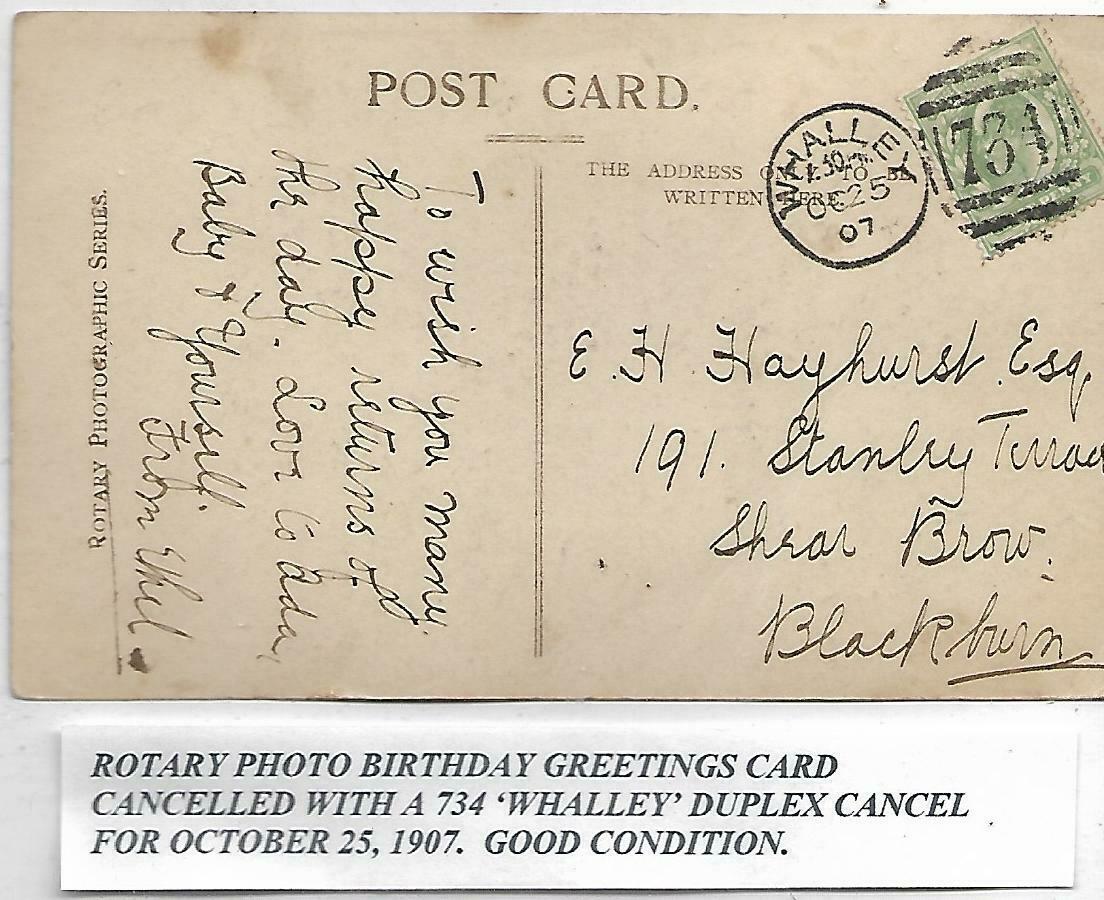 POST CARD.
THE ADDRESS ONLY TO BE
WRITTEN HERE.
WHALLEY
OC 25
07
734
ROTARY PHOTOGRAPHIC SERIES.
To wish you many
happy returns of
the day. Love to Ada,
Baby & Yourself.
From Ethel
E. H. Hayhurst Esq.
191. Stanley Terrace
Shear Brow.
Blackburn
ROTARY PHOTO BIRTHDAY GREETINGS CARD
CANCELLED WITH A 734 ‘WHALLEY’ DUPLEX CANCEL
FOR OCTOBER 25, 1907. GOOD CONDITION.